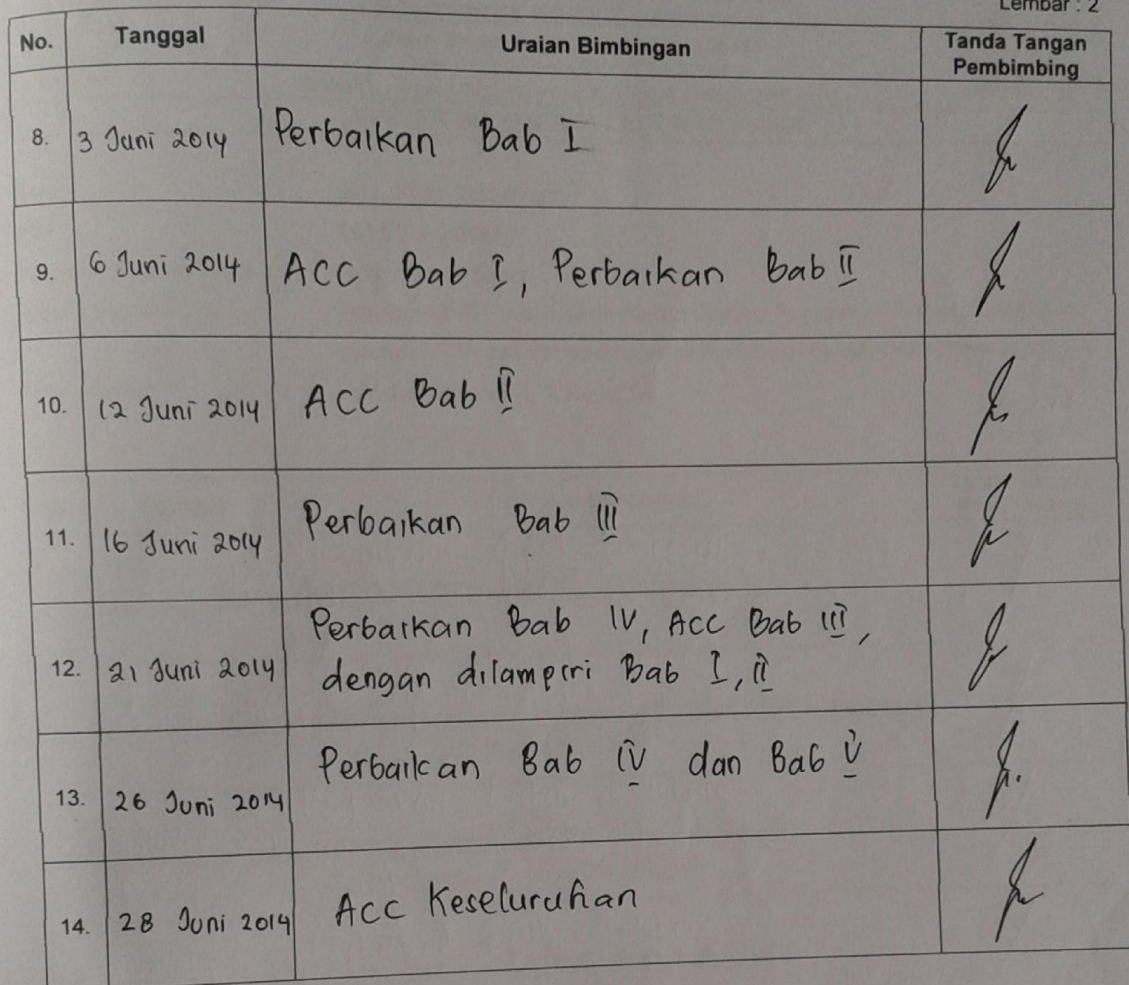 Lembar : 2
No. Tanggal Uraian Bimbingan Tanda Tangan
Pembimbing
8. 3 Juni 2014 Perbaikan Bab I
9. 6 Juni 2014 ACC Bab I, Perbaikan Bab II
10. 12 Juni 2014 ACC Bab II
11. 16 Juni 2014 Perbaikan Bab III
12. 21 Juni 2014 Perbaikan Bab IV, ACC Bab III,
dengan dilampiri Bab I, II
13. 26 Juni 2014 Perbaikan Bab IV dan Bab V
14. 28 Juni 2014 ACC Keseluruhan